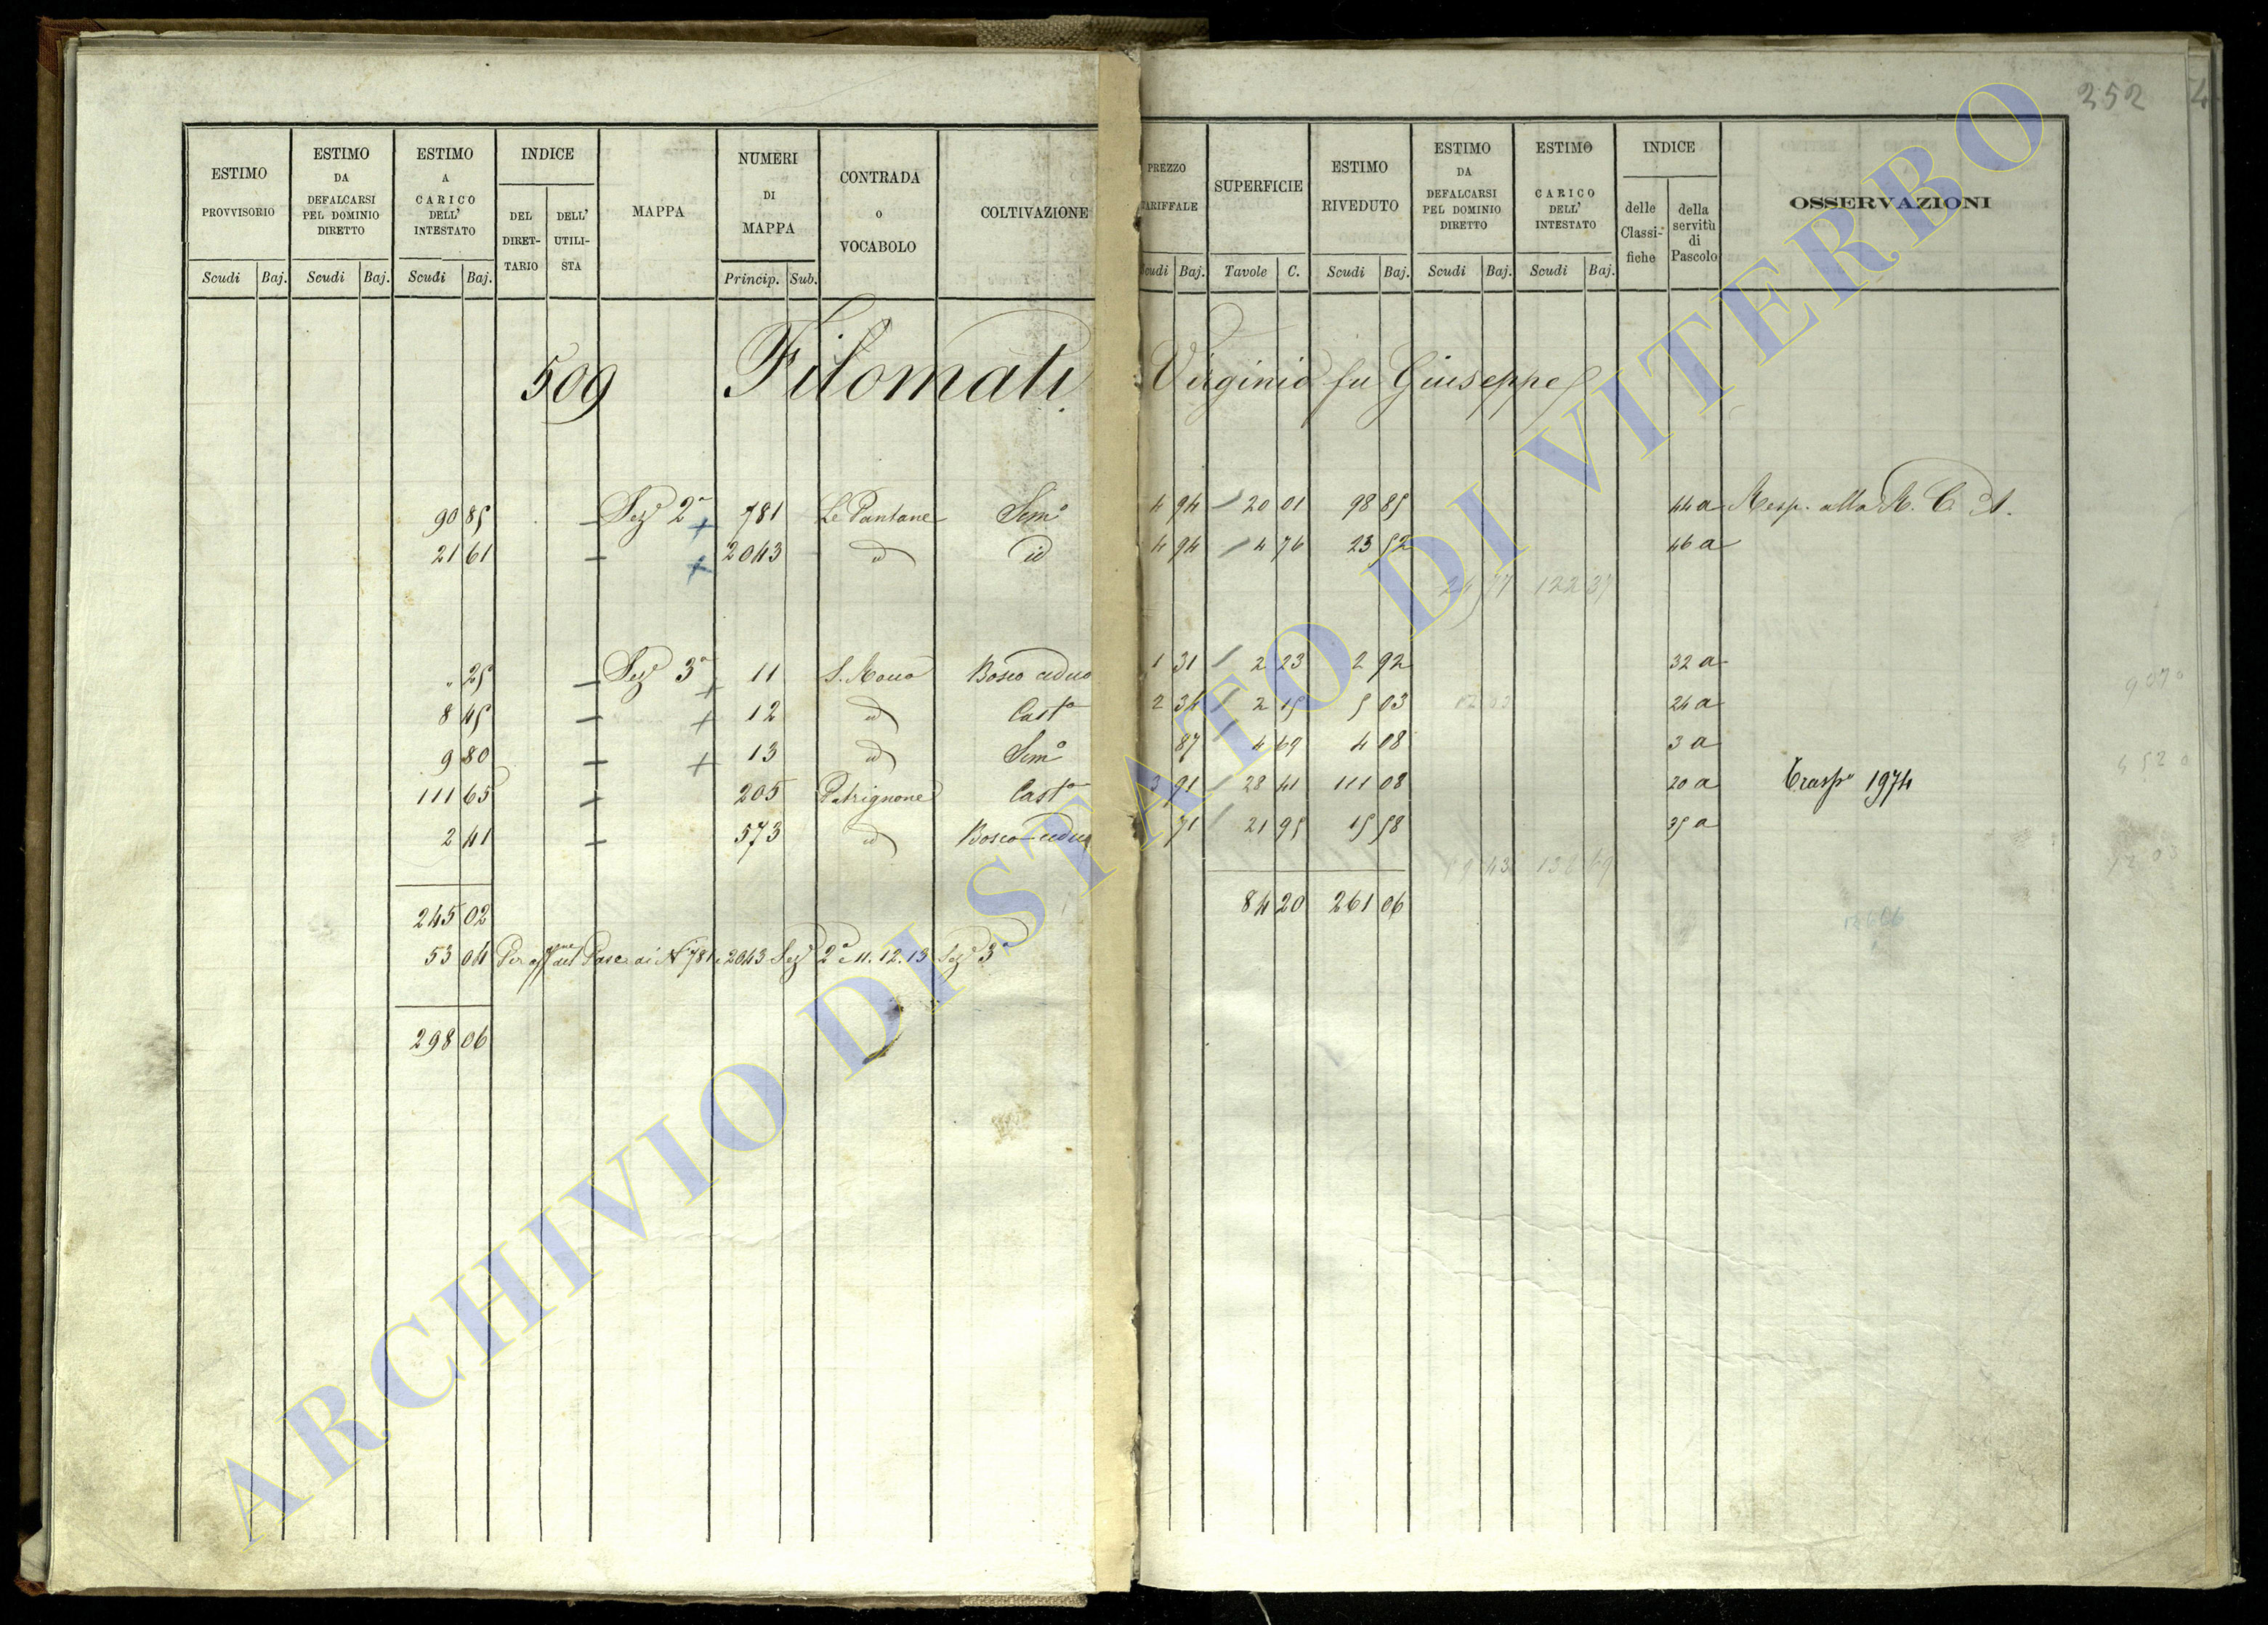 252
ESTIMO PROVVISORIO Scudi Baj.
ESTIMO DA DEFALCARSI PEL DOMINIO DIRETTO Scudi Baj.
ESTIMO A CARICO DELL' INTESTATO Scudi Baj.
INDICE DEL DIRETTARIO DELL' UTILISTA
MAPPA
NUMERI DI MAPPA Princip. Sub.
CONTRADA O VOCABOLO
COLTIVAZIONE
PREZZO TARIFFALE Scudi Baj.
SUPERFICIE Tavole C.
ESTIMO RIVEDUTO Scudi Baj.
ESTIMO DA DEFALCARSI PEL DOMINIO DIRETTO Scudi Baj.
ESTIMO CARICO DELL' INTESTATO Scudi Baj.
INDICE delle Classifiche della servitù di Pascolo
OSSERVAZIONI
509 Filomati Virginio fu Giuseppe
90 85 Sezᵉ 2ª 781 Le Pantane Semº 4 94 20 01 98 85 44 a Resp. alla R. C. A.
21 61 2043 id id 4 94 4 76 23 52 46 a
24 77 122 37
" 25 Sezᵉ 3ª 11 S. Rocco Bosco ceduo 1 31 2 23 2 92 32 a
8 45 12 id Castº 2 34 2 15 5 03 24 a
9 80 13 id Semº 87 4 69 4 08 3 a
111 65 205 Patrignone Castº 3 91 28 41 111 08 20 a Traspº 1974
2 41 573 id Bosco ceduo 71 21 95 15 58 35 a
138 69
245 02 84 20 261 06
53 04 Per affᵒⁿᵉ del Pasc. ai Nⁱ 781 e 2043 Sezᵉ 2ª e 11. 12. 13 Sezᵉ 3ª
298 06
9070
4520
1203
ARCHIVIO DI STATO DI VITERBO